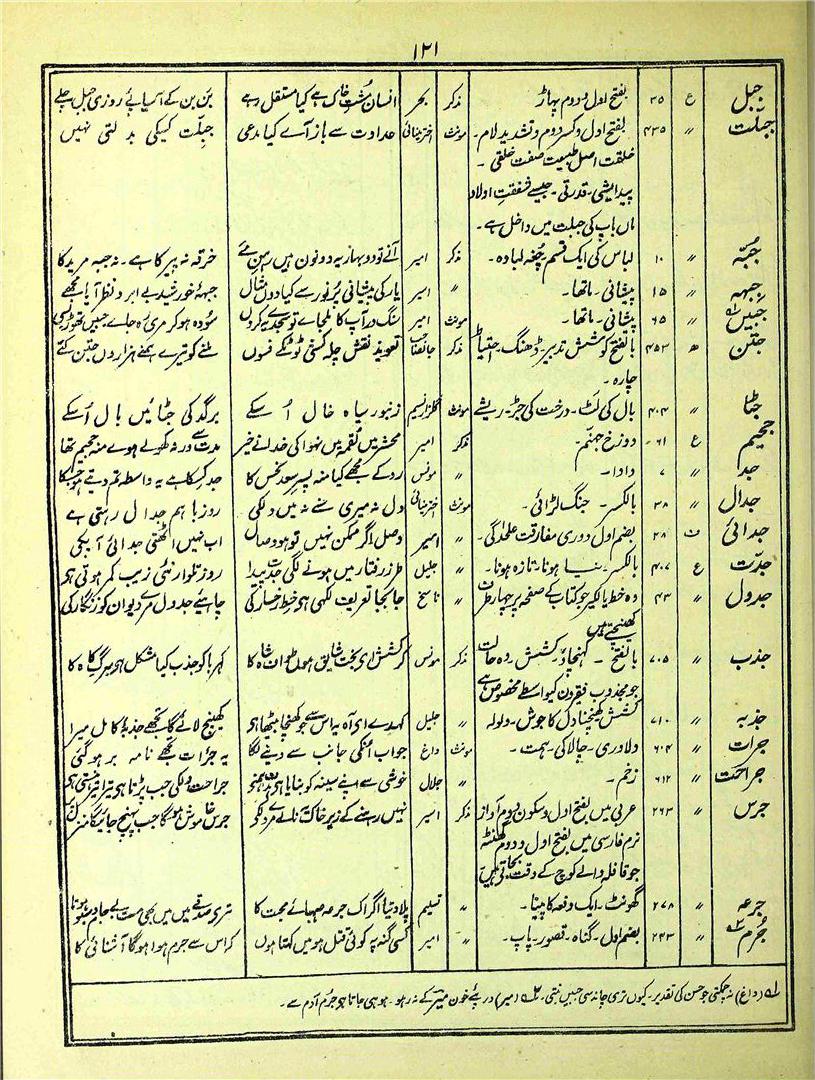 ۱۲۱
جبل ع ۳۵ بفتح اول و دوم پہاڑ مذکر بحر انسان مُشتِ خاک ہے کیا مستقل رہے بَن بَن کے آسیا پئے روزی جبل چلے
جبلّت 〃 ۴۳۵ بفتح اول و کسر دوم و تشدید لام۔ مونث اخترمینائی عداوت سے باز آے کیا مدعی جبلّت کسیکی بدلتی نہیں
خلقت اصل طبیعت صفت خلقی۔
پیدایشی۔ قدرتی۔ جیسے شفقت اولاد
ماں باپ کی جبلت میں داخل ہے۔
جُبّہ 〃 ۱۰ لباس کی ایک قسم چغہ لبادہ۔ مذکر امیر آئے تو دو بہار یہ دونوں ہیں رہن مے خرقہ نہ پیر کا ہے۔ نہ جبہ مرید کا
جبہہ 〃 ۱۵ پیشانی۔ ماتھا۔ 〃 امیر یار کی پیشانی پُرنور سے کیا دوں مثال جبہۂ خورشید بے ابرو نظر آیا مجھے
جبیں 〃 ۶۵ پیشانی۔ ماتھا۔ مونث امیر سنگ در آپ کا ملجاے تو سجدے یہ کروں سُودہ ہو کر مری رہ جاے جبیں تھوڑی سی
جتن ھ ۴۵۳ بالفتح کوشش تدبیر۔ ڈھنگ۔ احتیاط مذکر جانصاحب تعویذ نقش چلہ کشی ٹوٹکے فسوں ملنے کو تیرے ہمنے ہزاروں جتن کئے
چارہ۔
جٹا 〃 ۴۰۴ بال کی لَٹ۔ درخت کی جڑ۔ ریشے مونث گلزار نسیم زنبور سیاہ خال اُسکے برگد کی جٹائیں بال اُسکے
جحیم ع ۶۱ دوزخ جہنم۔ مذکر امیر محشر میں لقمہ میں نہوا کی خدا نے خیر مدت سے ورنہ کھولے ہوے منہ جحیم تھا
جد 〃 ۷ دادا۔ 〃 مونس رو کے مجھے کیا منہ پسر سعد نحس کا جد کسکا ہے یہ واسطہ تم دیتے ہو جسکا
جدال 〃 ۳۸ بالکسر۔ جنگ لڑائی۔ مونث اخترمینائی دل نہ میری سنے نہ میں دل کی روز باہم جدال رہتی ہے
جدائی ف ۲۸ بضم اول دوری مفارقت علٰحدگی۔ 〃 امیر وصل اگر ممکن نہیں تو ہو وصال اب نہیں اٹھتی جدائی آپکی
جدّت ع ۴۰۷ بالکسر۔ نیا ہونا۔ تازہ ہونا۔ 〃 جلیل طرز رفتار میں ہونے لگی جدّت پیدا روز تلوار نئی زیب کمر ہوتی ہی
جدول 〃 ۴۳ وہ خط یا لکیر جو کتاب کے صفحہ پر چہار طرف 〃 ناسخ جا بجا تعریف لکھی ہی خط رخسار کی چاہیئے جدول مرے دیوان کو زنگار کی
کھینچتے ہیں
جذب 〃 ۷۰۵ بالفتح۔ کھنچاؤ۔ کشش۔ وہ حالت مذکر مونس کہربا کو جذب کیا مشکل ہو برگ کاہ کا
جو مجذوب فقیروں کیواسطے مخصوص ہے
جذبہ 〃 ۷۱۰ کشش کھینچنا دل کا جوش۔ ولولہ 〃 جلیل کہدے ای آہ یہ اس سے جو کھنچا بیٹھا ہو کھینچ لائے گا تجھے جذبۂ کامل میرا
جرات 〃 ۶۰۴ دلاوری۔ چالاکی۔ ہمت۔ مونث داغ جواب اُنکی جانب سے دینے لگا یہ جرات تجھے نامہ بر ہو گئی
جراحت 〃 ۶۱۲ زخم۔ 〃 جلال خوشی سے اپنے سینہ کو بنایا ہی ہدف ہمنے جراحت دل کی جب پڑتا ہو تیرا تیر ہنستی ہی
جرس 〃 ۲۶۳ عربی میں بفتح اول و سکون دوم آواز مذکر امیر نہیں رہنے کے زیر خاک نالے مرے دل کے جرس خاموش ہوگا جب پہنچ جائیگا منزل تک
نرم فارسی میں بفتح اول و دوم گھنٹہ
جو قافلہ والے کوچ کے وقت بجاتے ہیں
جرعہ 〃 ۲۷۸ گھونٹ۔ ایک دفعہ کا پینا۔ 〃 تسلیم پلا دیتا اگر اک جرعہ صہبائے محبت کا تری صدقے میں میں بھی مست بے جام و سبو ہوتا
جُرم 〃 ۲۴۳ بضم اول۔ گناہ۔ قصور۔ پاپ۔ 〃 امیر کسی گنہ پہ کوئی قتل ہو میں کہتا ہوں کہ اس سے جرم ہوا ہوگا آشنائی کا
۱؎ (داغ) نہ چمکتی جو حسن کی تقدیر۔ کیوں تری چاند سی جبیں بنتی۔ ۲؎ (میر) درپئے خون میر کے نہ رہو۔ ہو ہی جاتا ہو جرم آدم سے۔